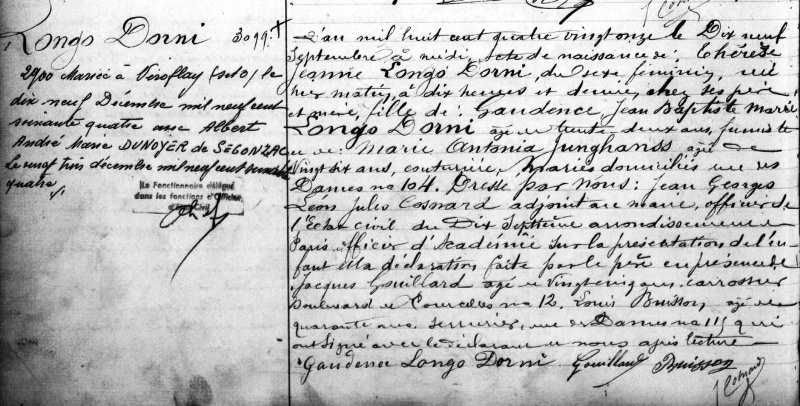 Longo Dorni 3099
2900 Mariée à Viroflay (S&O) le
dix neuf Décembre mil neuf cent
soixante quatre avec Albert
André Marie DUNOYER de SEGONZAC
Le vingt trois décembre mil neuf cent soixante
quatre
Le Fonctionnaire délégué
dans les fonctions d'Officier
d'Etat Civil
L'an mil huit cent quatre vingt onze le Dix neuf
Septembre à midi, acte de naissance de: Thérèse
Jeanne Longo Dorni, du sexe féminin, née
hier matin, à dix heures et demie, chez ses père
et mère, fille de: Gaudence Jean Baptiste Marie
Longo Dorni âgé de trente deux ans, fumiste
et de: Marie Antonia Junghanss âgée de
Vingt six ans, couturière, mariés domiciliés rue des
Dames no 104. Dressé par nous: Jean Georges
Léon Jules Cosnard adjoint au maire, officier de
l'Etat civil du Dix Septième arrondissement de
Paris officier d'Académie sur la présentation de l'en-
fant et la déclaration faite par le père en présence de
Jacques Gouillard âgé de Vingt cinq ans, carrossier
Boulevard de Courcelles no 12. Louis Buisson, âgé de
quarante ans, serrurier, rue des Dames no 115 qui
ont signé avec le déclarant et nous après lecture
Gaudence Longo Dorni Gouillard Buisson
J Cosnard